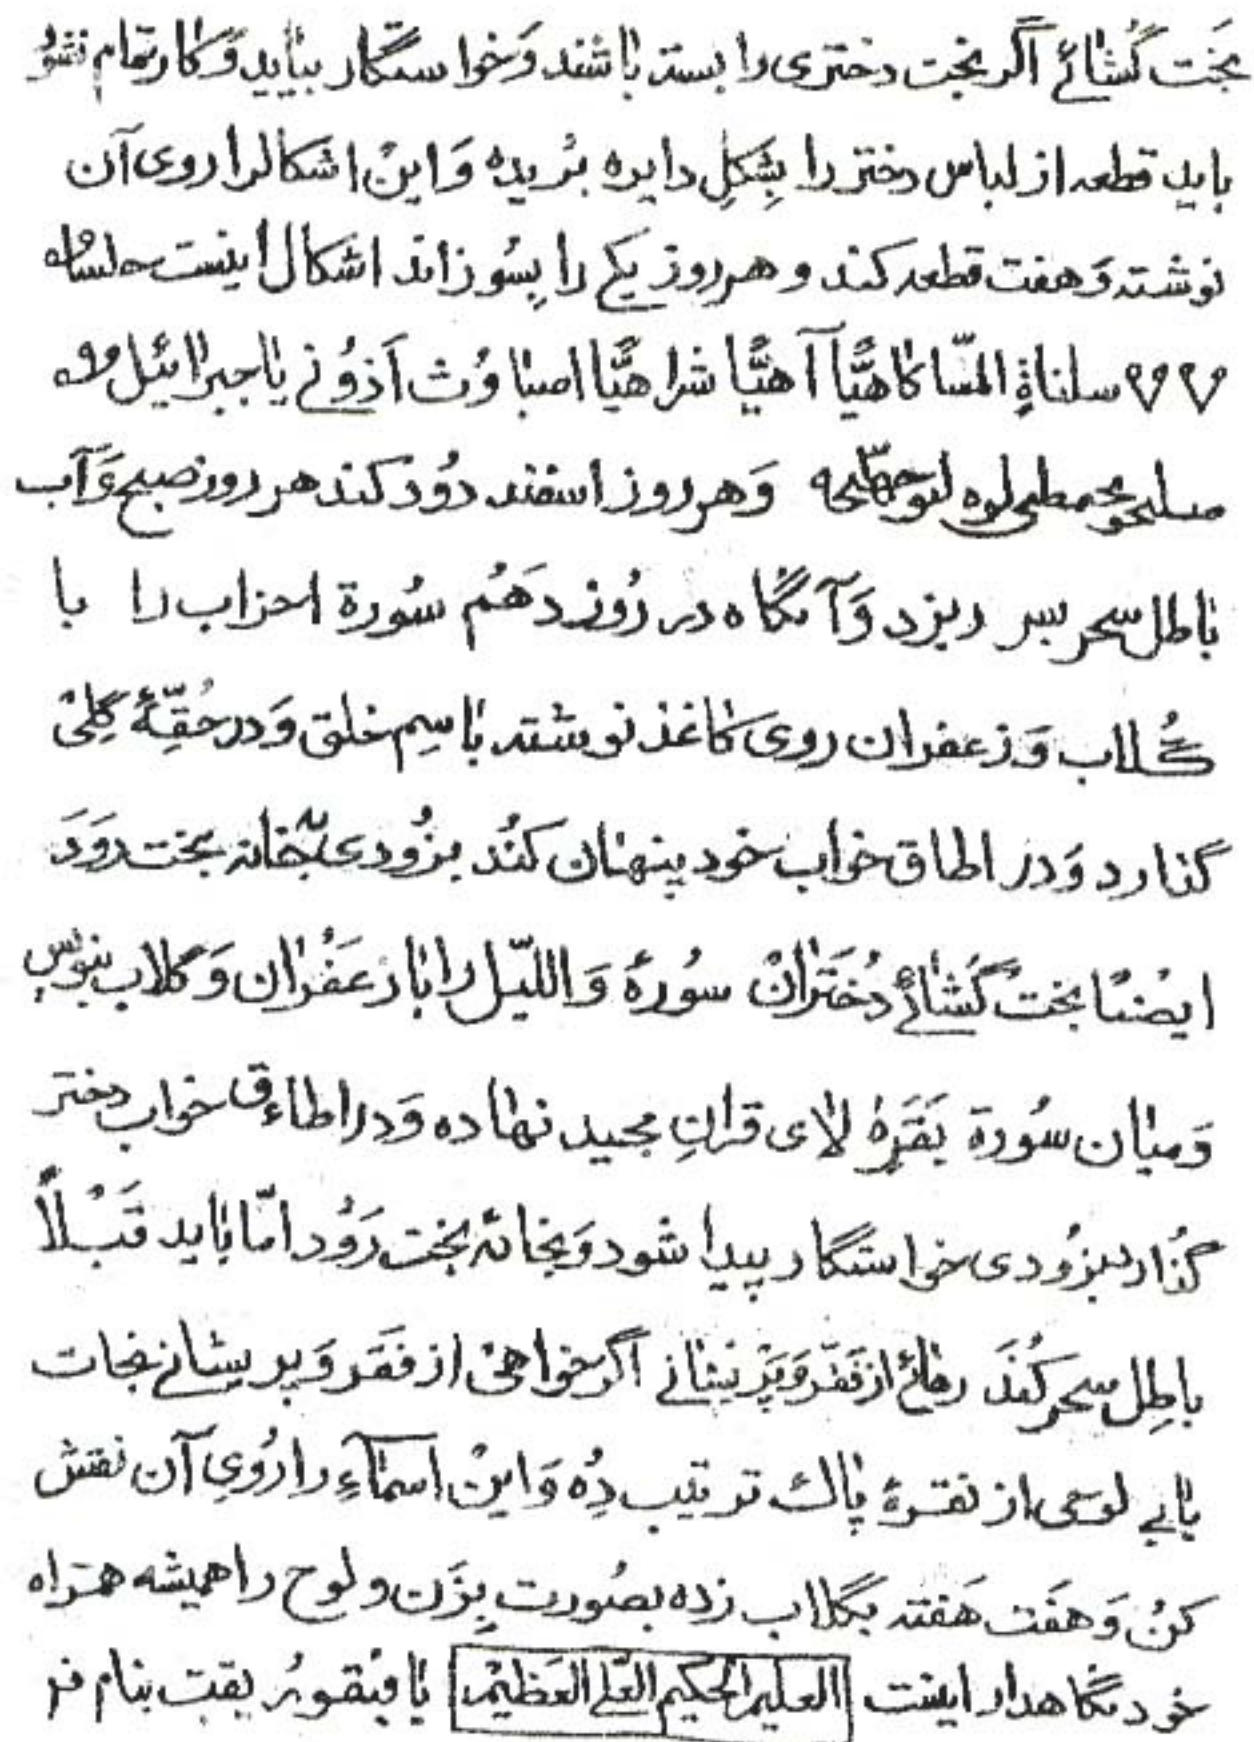 بَخَت گُشائے اگر بخت دختری را بسته باشند وَخواستگار بیاید وَکار تمام نشوُ
باید قطعه از لباس دختر را بِشَکلِ دایره بُریده وَاینْ اشکالرا روی آن
نوشته وَهفت قطعه کند و هر روز یکے را بِسُوزاند اشکال اینست
سلناةٍ المسّا کاهیًّا آ آهیًّا شراهیًّا اصباوُث اَذوُنے یا جبرائیل
وَهر روز اسفند دوُد کند هر روز صبح وَآب
باطل سحر بسر ریزد وَآنگاه در رُوز دَهَم سُورة احزاب را با
گُلاب وَزعفران روی کاغذ نوشته باسِم خلق وَدر حُقِّهٔ گِلیْ
گذارد وَدر اطاق خواب خود پنهان کُند بزُودی بخانه بخت رَوَدَ
ایضًا بختْ گشائے دُختَرانْ سُورهٔ وَاللَّیل را با زَعَفُران وَگلاب بنویس
وَمیان سُورة بَقَرِهْ لای قرانِ مجید نهاده وَدر اطاءق خواب دختر
گُذار بزُودی خواستگار پیدا شود وَبخانهٔ بخت رَوُد امّا باید قَبْلاً
باطِل سحر کُندَ رهائے از فَقَر وَپَریشانے اگر خواهیْ از فَقَر وَپریشانے نجات
یابے لوحی از نقرهٔ پاك ترتیب دِه وَاینْ اسمآءِ را رُویِ آن نقش
کنْ وَهفَت هَفته بگلاب زده بصُورت بِزَن و لوح را همیشه همراه
خود نگاهدار اینت العلیم الحکیم العَلے العَظیْم یا فیَقورُ بقیت بنام فر